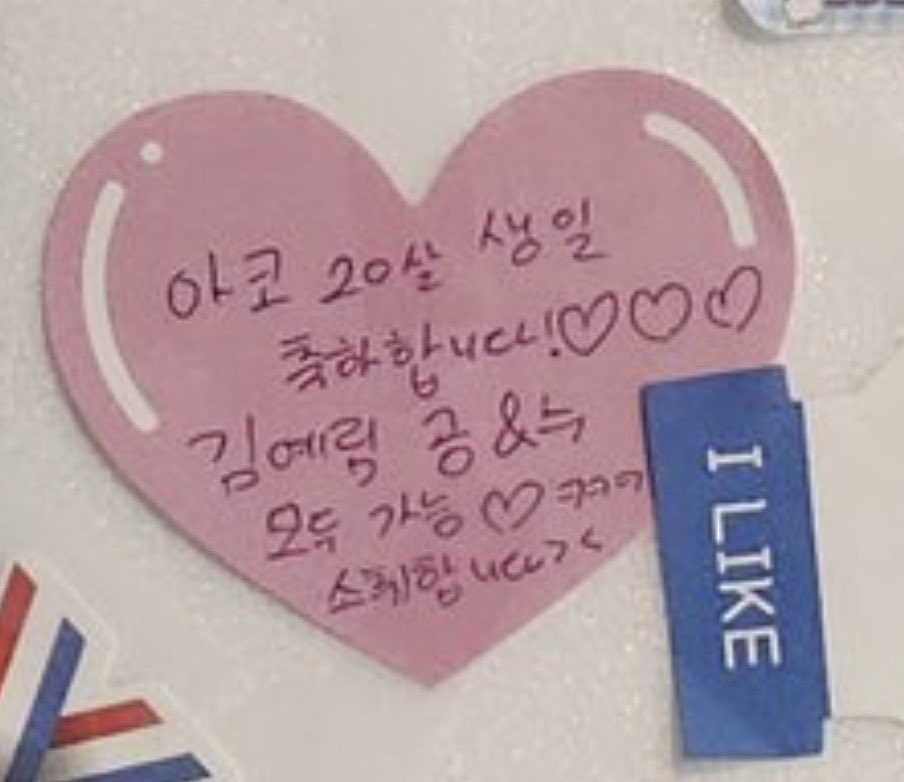 아코 20살 생일
축하합니다!♡♡♡
김예림 공&수
모두 가능♡ ㅋㅋㅋ
소취합니다><
I LIKE